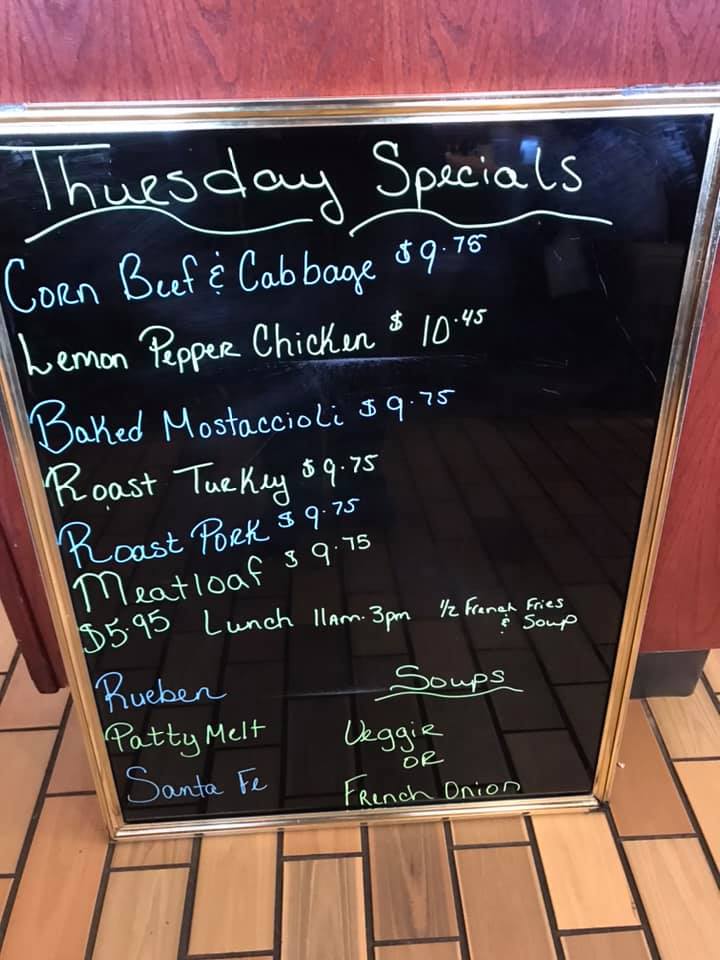 Thursday Specials
Corn Beef & Cabbage $9.75
Lemon Pepper Chicken $10.45
Baked Mostaccioli $9.75
Roast Turkey $9.75
Roast Pork $9.75
Meatloaf $9.75
$5.95 Lunch 11Am-3pm 1/2 French Fries
& Soup
Rueben
Patty Melt
Santa Fe
Soups
Veggie
OR
French Onion